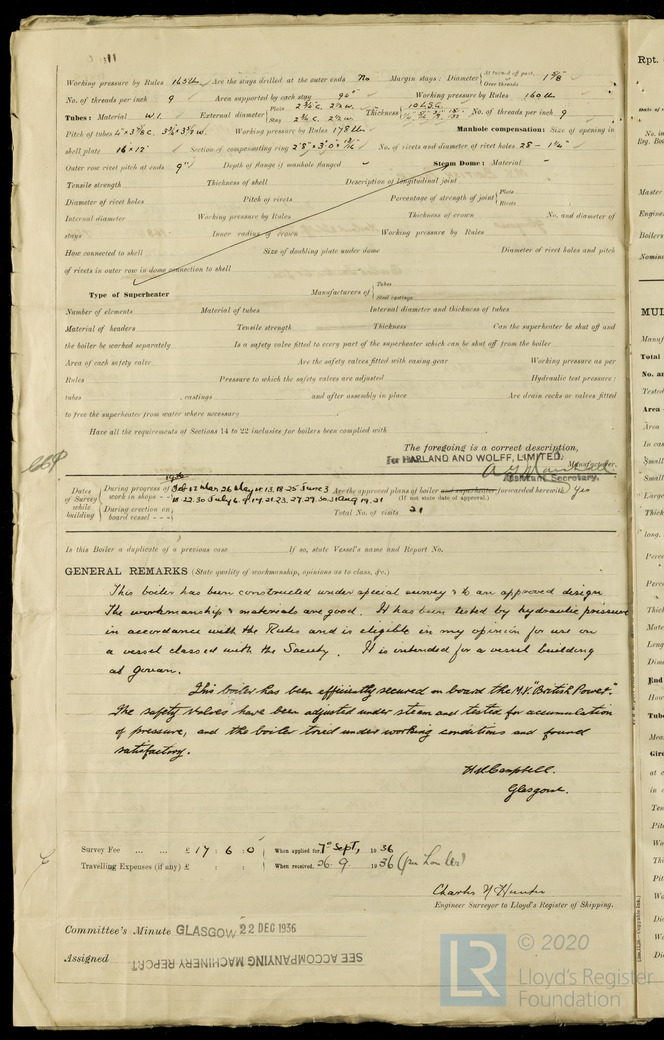 Working pressure by Rules 165 lb Are the stays drilled at the outer ends No Margin stays: Diameter { At turned off part, Over threads 1 5/8"
No. of threads per inch 9 Area supported by each stay Working pressure by Rules 160 lb
Tubes: Material W.I. External diameter { Plain 2 3/4 C. 2 1/2 W. Stay 2 3/4 C. 2 1/2 W. Thickness { 10 L.S.G. No. of threads per inch 9
Pitch of tubes Working pressure by Rules 178 lb Manhole compensation: Size of opening in
shell plate 16 × 12 Section of compensating ring No. of rivets and diameter of rivet holes 28 - 1 1/4"
Outer row rivet pitch at ends 9" Depth of flange if manhole flanged - Steam Dome: Material -
Tensile strength Thickness of shell Description of longitudinal joint
Diameter of rivet holes Pitch of rivets Percentage of strength of joint { Plate Rivets
Internal diameter Working pressure by Rules Thickness of crown No. and diameter of
stays Inner radius of crown Working pressure by Rules
How connected to shell Size of doubling plate under dome Diameter of rivet holes and pitch
of rivets in outer row in dome connection to shell
Type of Superheater Manufacturers of { Tubes Steel castings
Number of elements Material of tubes Internal diameter and thickness of tubes
Material of headers Tensile strength Thickness Can the superheater be shut off and
the boiler be worked separately Is a safety valve fitted to every part of the superheater which can be shut off from the boiler
Area of each safety valve Are the safety valves fitted with easing gear Working pressure as per
Rules Pressure to which the safety valves are adjusted Hydraulic test pressure:
tubes , castings and after assembly in place Are drain cocks or valves fitted
to free the superheater from water where necessary
Have all the requirements of Sections 14 to 22 inclusive for boilers been complied with
The foregoing is a correct description,
For HARLAND AND WOLFF, LIMITED, Manufacturer.
Assistant Secretary.
1936
Dates of Survey while building { During progress of work in shops - - { During erection on board vessel - - -
Are the approved plans of boiler and superheater forwarded herewith Yes
(If not state date of approval.)
Total No. of visits 21
Is this Boiler a duplicate of a previous case If so, state Vessel's name and Report No.
GENERAL REMARKS (State quality of workmanship, opinions as to class, &c.)
This boiler has been constructed under special survey & to an approved design.
The workmanship & materials are good. It has been tested by hydraulic pressure
in accordance with the Rules and is eligible in my opinion for use on
a vessel classed with the Society. It is intended for a vessel building
at Govan.
This boiler has been efficiently secured on board the M.V. "British Power".
The safety valves have been adjusted under steam and tested for accumulation
of pressure, and the boiler tried under working conditions and found
satisfactory.
H.W. Campbell.
Glasgow.
Survey Fee ... ... £ 17 : 6 : 0 When applied for, 7th Sept, 1936
Travelling Expenses (if any) £ : : When received, 26.9 1936
Charles N Hunter
Engineer Surveyor to Lloyd's Register of Shipping.
Committee's Minute GLASGOW 22 DEC 1936
Assigned SEE ACCOMPANYING MACHINERY REPORT
LR © 2020
Lloyd's Register
Foundation
Rpt.